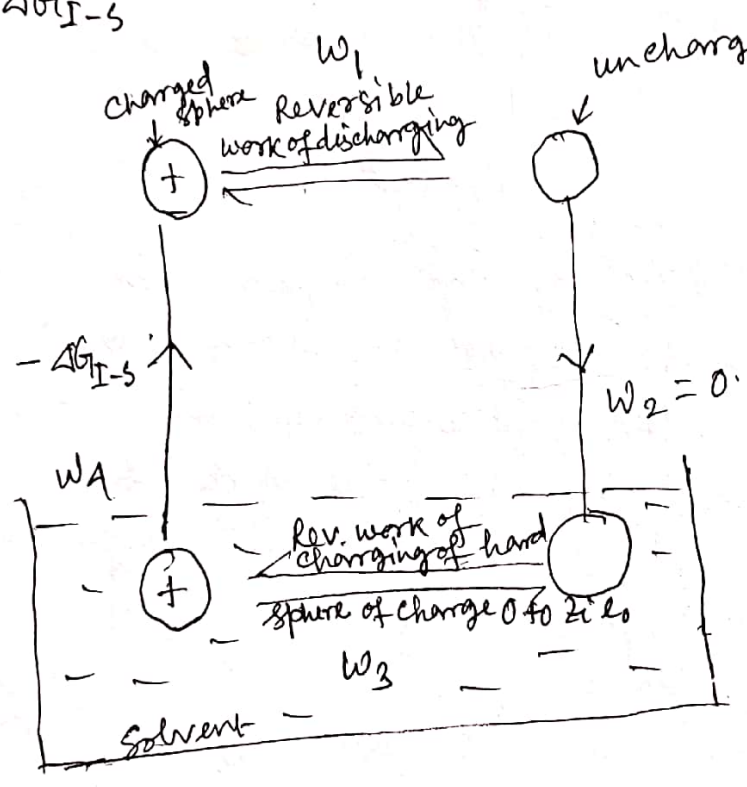 ΔG_I-S
W₁
uncharg
Charged
sphere
Reversible
work of discharging
+
- ΔG_I-S
W₂ = 0.
W4
Rev. work of
charging of hard
+
sphere of charge 0 to zi e₀
W₃
Solvent